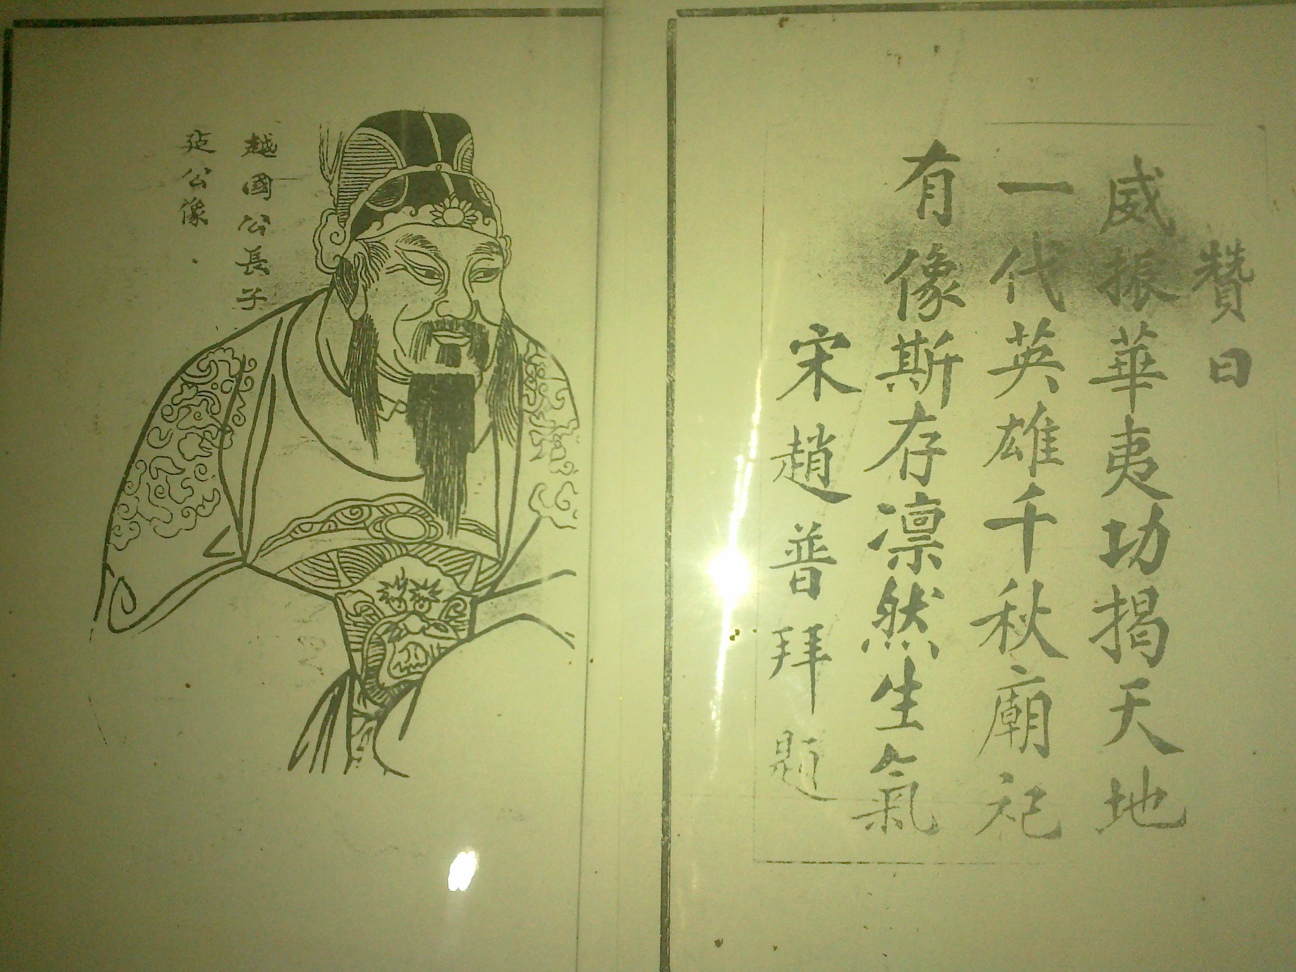 贊曰
威振華夷功揭天地
一代英雄千秋廟祀
有像斯存凛然生氣
宋趙普拜題
越國公長子
延公像